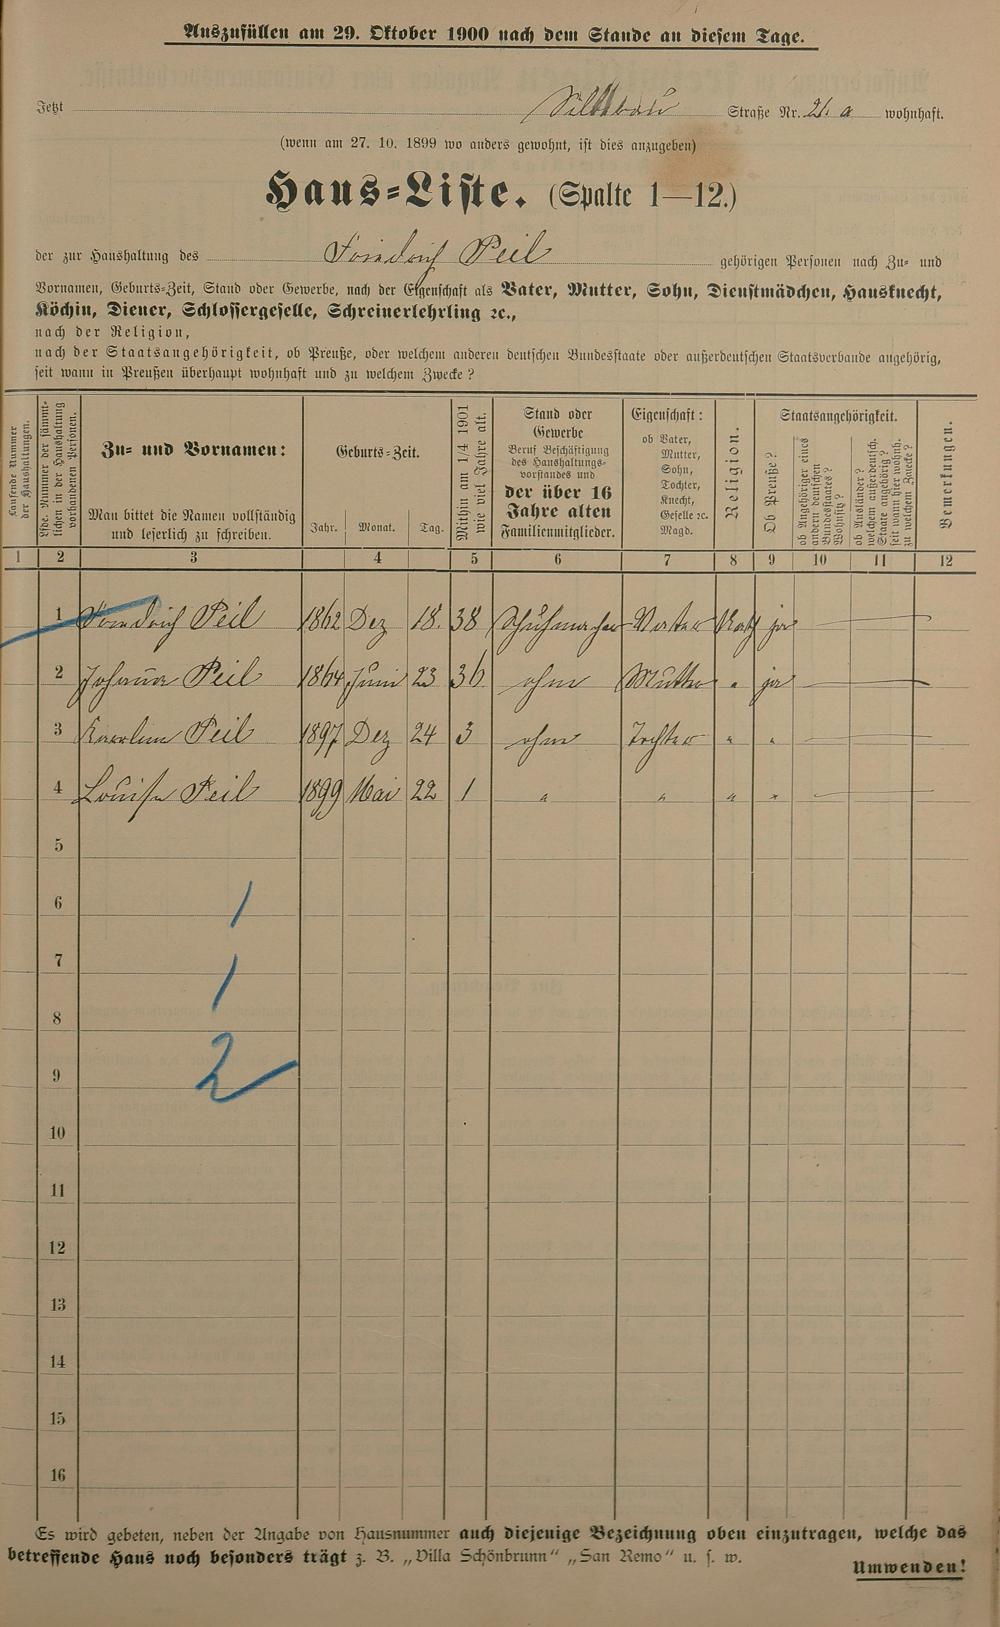 Auszufüllen am 29. Oktober 1900 nach dem Stande an diesem Tage.
Jetzt Straße Nr. 21. a wohnhaft.
(wenn am 27. 10. 1899 wo anders gewohnt, ist dies anzugeben)
Haus-Liste. (Spalte 1—12.)
der zur Haushaltung des Friedrich Peil gehörigen Personen nach Zu- und
Vornamen, Geburts-Zeit, Stand oder Gewerbe, nach der Eigenschaft als Vater, Mutter, Sohn, Dienstmädchen, Hausknecht,
Köchin, Diener, Schlossergeselle, Schreinerlehrling ꝛc.,
nach der Religion,
nach der Staatsangehörigkeit, ob Preuße, oder welchem anderen deutschen Bundesstaate oder außerdeutschen Staatsverbande angehörig,
seit wann in Preußen überhaupt wohnhaft und zu welchem Zwecke?
Laufende Nummer
der Haushaltungen.
Lfde. Nummer der sämmt-
lichen in der Haushaltung
vorhandenen Personen.
Zu- und Vornamen:
Man bittet die Namen vollständig
und leserlich zu schreiben.
Geburts-Zeit.
Jahr. Monat. Tag.
Mithin am 1/4 1901
wie viel Jahre alt.
Stand oder
Gewerbe
Beruf Beschäftigung
des Haushaltungs-
vorstandes und
der über 16
Jahre alten
Familienmitglieder.
Eigenschaft:
ob Vater,
Mutter,
Sohn,
Tochter,
Knecht,
Geselle ꝛc.
Magd.
Religion.
Staatsangehörigkeit.
Ob Preuße?
ob Angehöriger eines
andern deutschen
Bundesstaates?
Wohnsitz?
ob Ausländer?
welchem außerdeutsch.
Staate angehörig?
seit wann hier wohnh.
zu welchem Zwecke?
Bemerkungen.
1 2 3 4 5 6 7 8 9 10 11 12
1 Friedrich Peil 1862 Dez 18. 38 Schuhmacher Vater Kath ja
2 Johanna Peil 1864 Juni 23 36 ohne Mutter " ja
3 Karoline Peil 1897 Dez 24 3 ohne Tochter " "
4 Louise Peil 1899 Mai 22 1 " " " "
5
6 1
7 1
8
9 2
10
11
12
13
14
15
16
Es wird gebeten, neben der Angabe von Hausnummer auch diejenige Bezeichnung oben einzutragen, welche das
betreffende Haus noch besonders trägt z. B. „Villa Schönbrunn" „San Remo" u. s. w.
Umwenden!